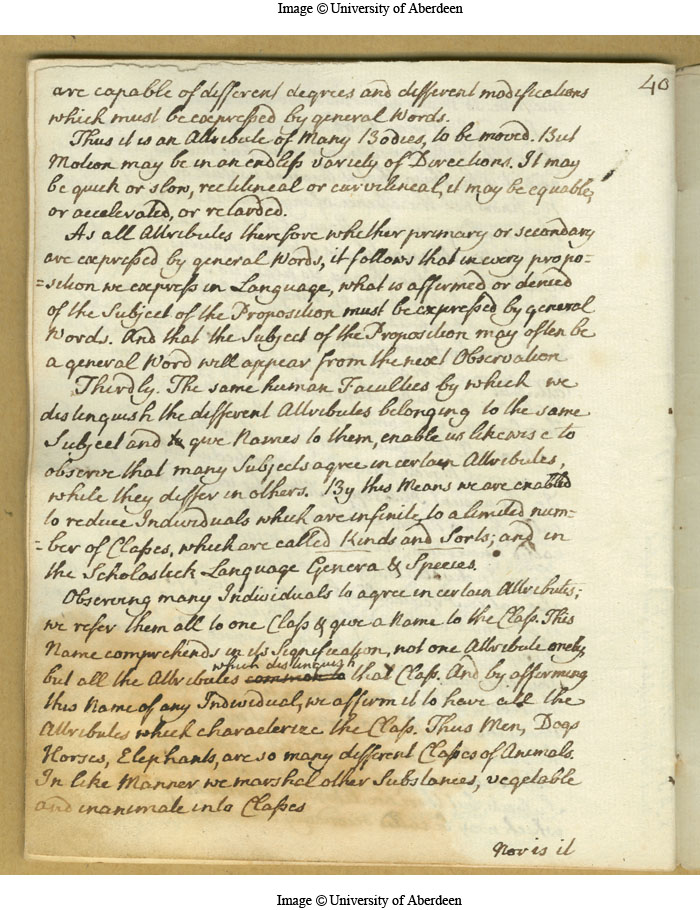 Image © University of Aberdeen
40
are capable of different degrees and different modifications
which must be expressed by general Words.
Thus it is an Attribute of Many Bodies, to be moved. But
Motion may be in an endless variety of Directions. It may
be quick or slow, rectilineal or curvilineal, it may be equable,
or accelerated, or retarded.
As all Attributes therefore whether primary or secondary
are expressed by general Words, it follows that in every propo-
=sition we express in Language, what is affirmed or denied
of the Subject of the Proposition must be expressed by general
Words. And that the Subject of the Proposition may often be
a general Word will appear from the next Observation
Thirdly. The same human Faculties by which we
distinguish the different Attributes belonging to the same
Subject and give Names to them, enable us likewise to
observe that many Subjects agree in certain Attributes,
while they differ in others. By this Means we are enabled
to reduce Individuals which are infinite, to a limited num-
=ber of Classes, which are called Kinds and Sorts; and in
the Scholastick Language Genera & Species.
Observing many Individuals to agree in certain Attributes;
we refer them all to one Class & give a Name to the Class. This
Name comprehends in its Signification, not one Attribute onely,
which distinguish
but all the Attributes common to that Class. And by affirming
this Name of any Individual, we affirm it to have all the
Attributes which characterize the Class. Thus Men, Dogs
Horses, Elephants, are so many different Classes of Animals.
In like Manner we marshal other Substances, vegetable
and inanimate into Classes
Nor is it
Image © University of Aberdeen